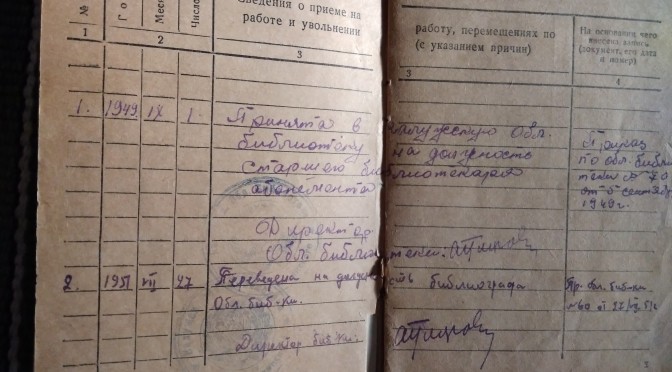 № Г о Месяц Число Сведения о приеме на работе и увольнении работу, перемещениях по (с указанием причин) На основании чего внесена запись (документ, его дата и номер)
1 2 3 3 4
1. 1949 IX 1. Принята в Калужскую Обл.
библиотеку на должность
старшего библиотекаря
абонемента
Приказ
по обл. библио
теки № 70
от 5 сент.
1949 г.
Директор
Обл. библиотеки:
2. 1951 VII 27 Переведена на должность библиографа
Обл. биб-ки.
Пр. обл. биб-ки.
№60 от 27/VII 51г
Директор биб-ки